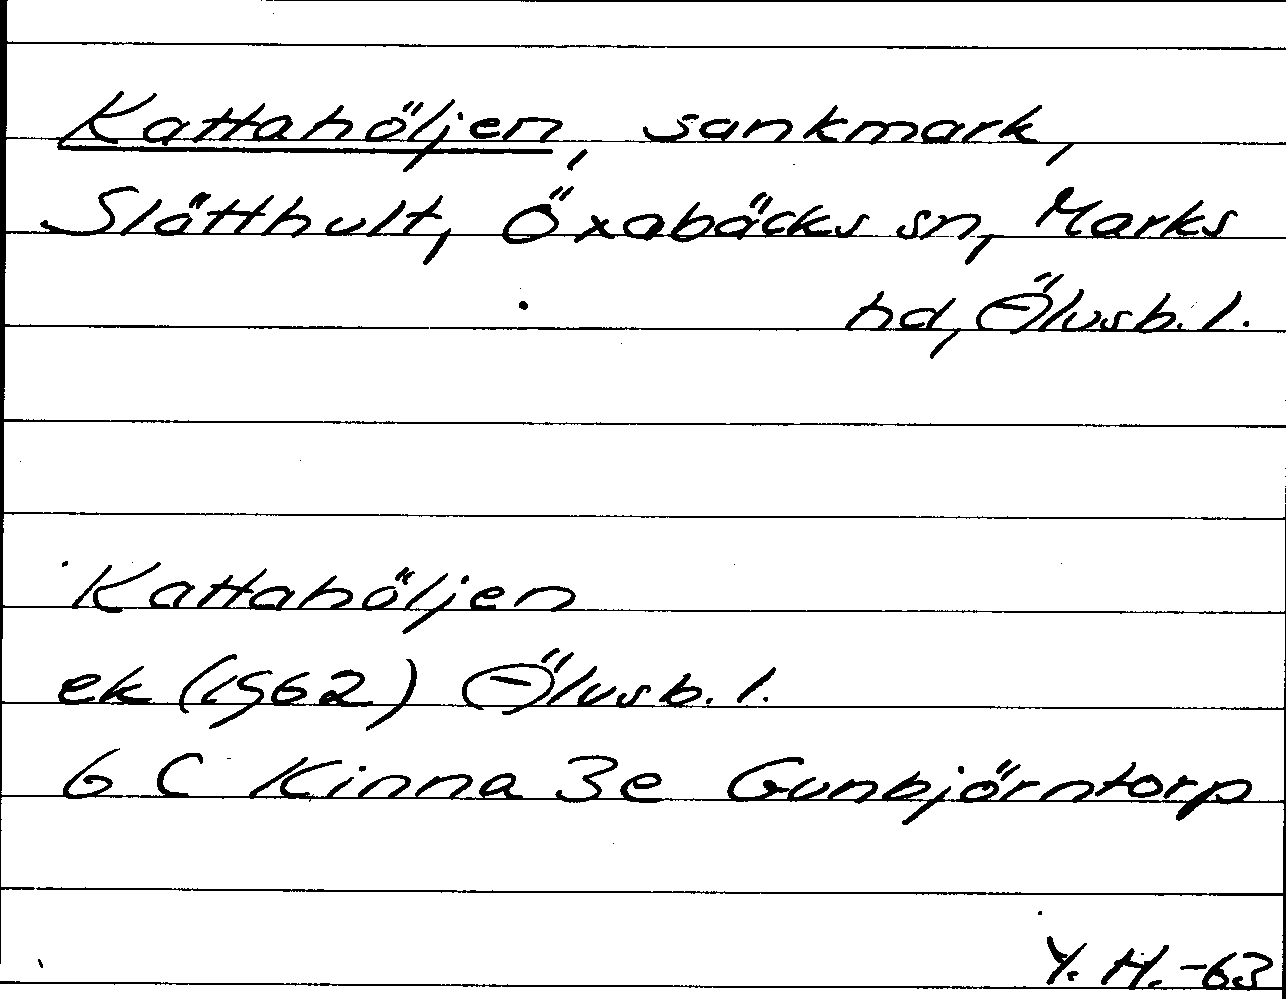 Kattahöljen, sankmark,
Slätthult, Öxabäcks sn, Marks
hd, Älvsb. l.
Kattahöljen
ek (1962) Älvsb. l.
6 C Kinna 3e Gunbjörntorp
Y. H. -63